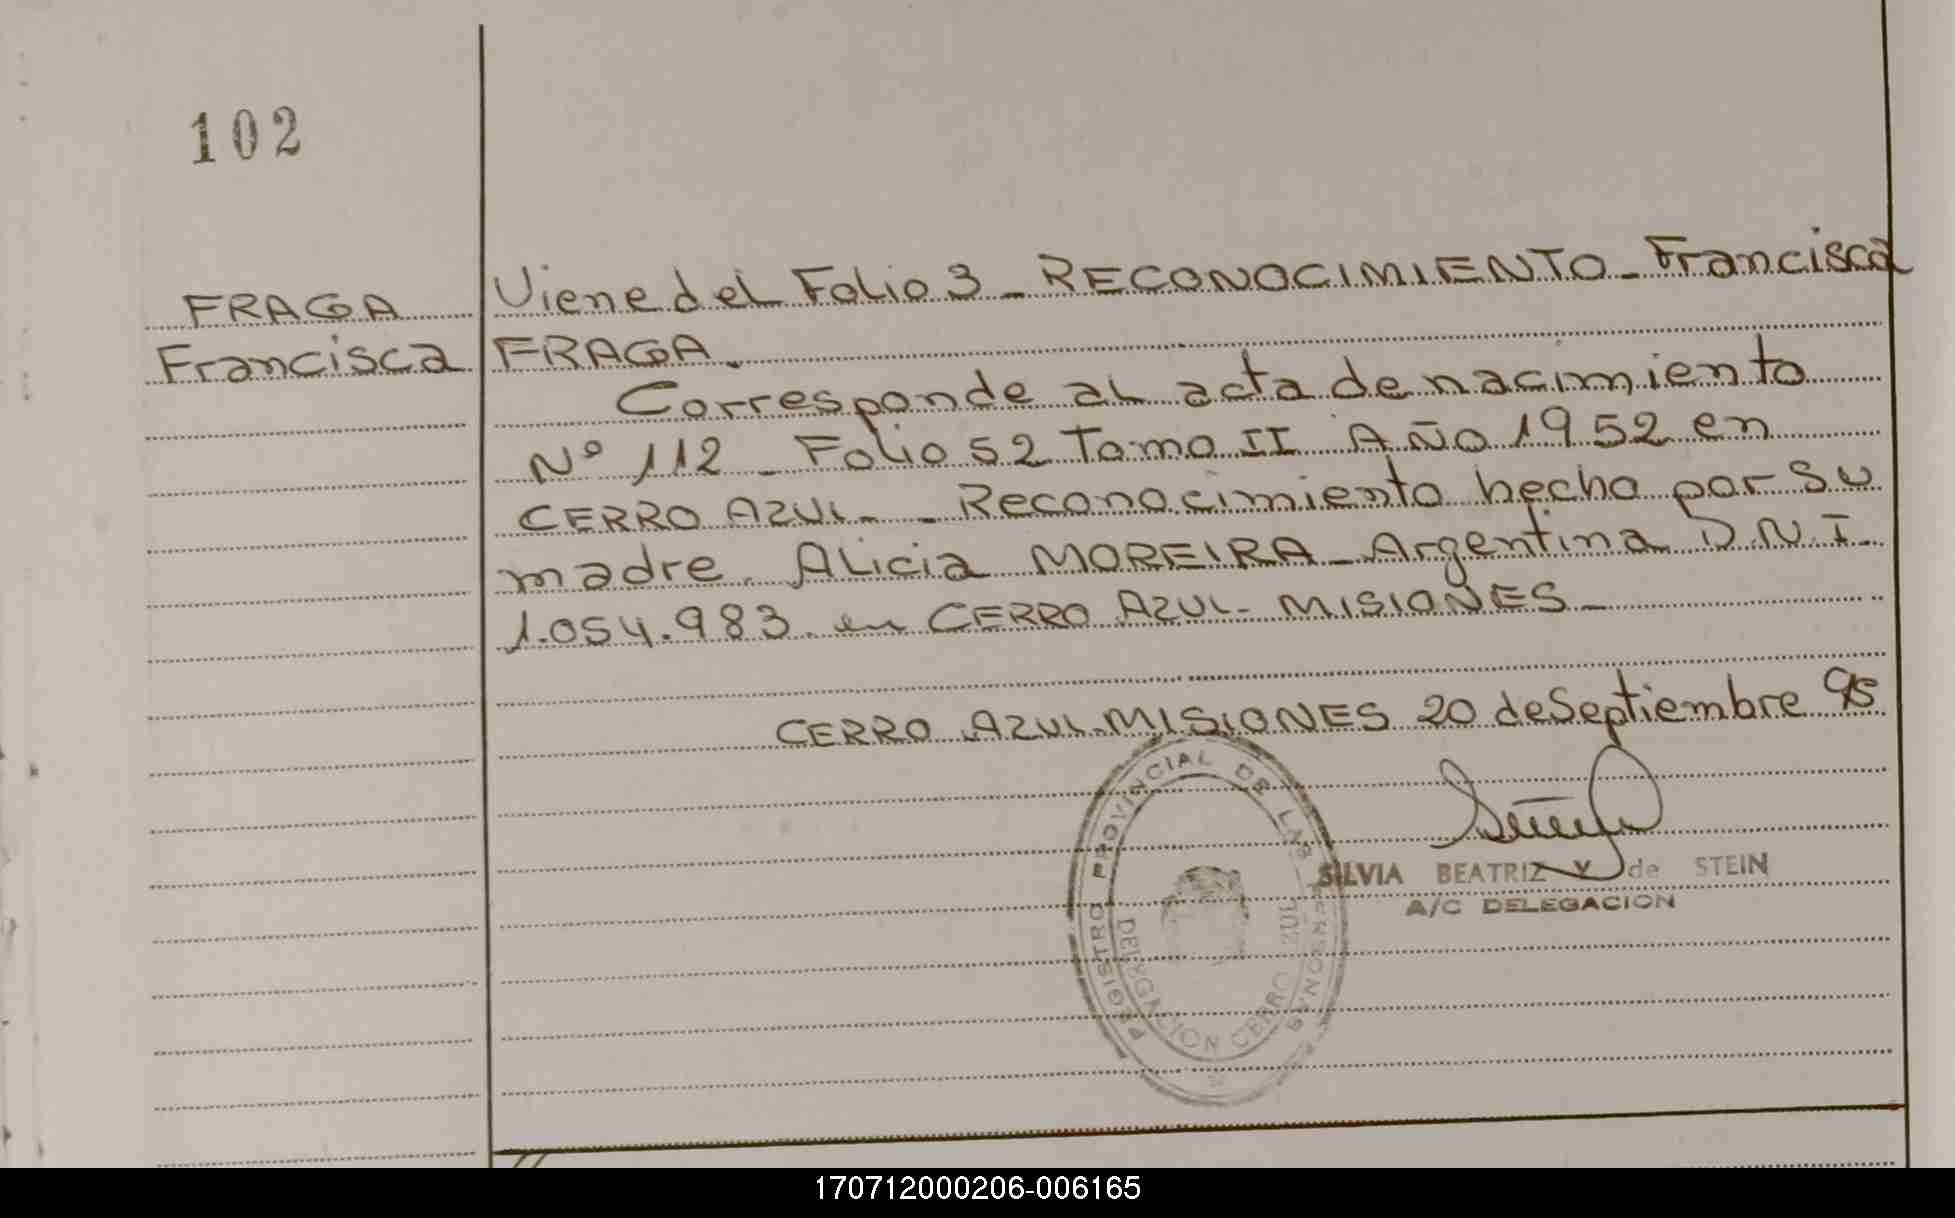 102
FRAGA
Francisca
Viene del Folio 3 - RECONOCIMIENTO - Francisca
FRAGA.
Corresponde al acta de nacimiento
Nº 112 - Folio 52 Tomo II Año 1952 en
CERRO AZUL - - Reconocimiento hecho por su
madre. Alicia MOREIRA - Argentina D.N.I.
1.054.983. en CERRO AZUL - MISIONES -
CERRO AZUL - MISIONES 20 de Septiembre 95
REGISTRO PROVINCIAL DE LAS PERSONAS
DELEGACION CERRO AZUL
SILVIA BEATRIZ V de STEIN
A/C DELEGACION
170712000206-006165